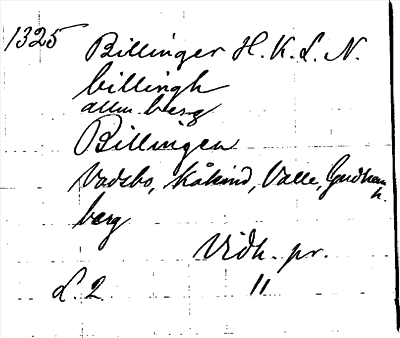 1325 Billinger H. K. L. N.
billingh
allm. berg
Billingen
Vadsbo, Kåkind, Valle, Gudhem h.
berg
Vidh. pr.
L. 2 "